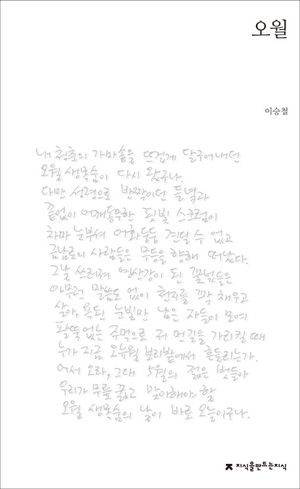 오월
이승철
내 청춘의 가마솥을 뜨겁게 달구어내던
오월 생목숨이 다시 왔구나.
다만 섬광으로 반짝이던 들녘과
끝없이 어깨동무한 핏빛 스크럼이
차마 눈부셔 어화둥둥 견딜 수 없고
금남로의 사람들은 무등을 향해 떠났다.
그날 쓰러져 역사가 된 꽃넋들은
아무런 말씀도 없이 천지를 꽉 채우고
살아 온 눈빛만 남은 자들이 모여
팔뚝 없는 주먹으로 저 먼 길을 가리킬 때
누가 지금 오뉴월 보리밭에서 흔들리는가.
어서 오라, 그대 5월의 젊은 벗들아
우리가 무릎 꿇고 맞이해야 할
오월 생목숨의 날이 바로 오늘이구나.
지식을만드는지식